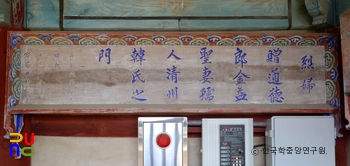 烈婦
贈道德
郎金益
聖妻孺
人淸州
韓氏之
門
© 한국학중앙연구원